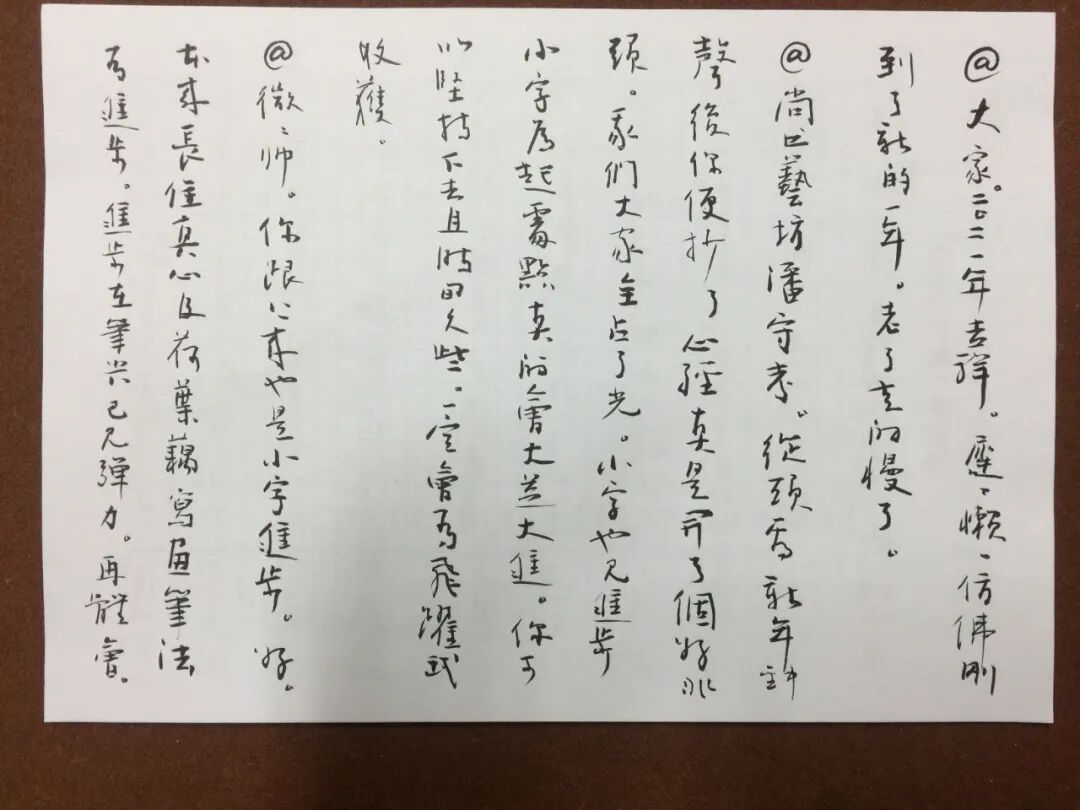 @大家。二〇二一年吉祥。懒一仿佛刚
到了新的一年。老了走的慢了。
@尚艺坊潘守孝。從頭看新年鈡
聲後你便抄了心經真是開了個好兆
頭。我們大家全占了光。小字也見進步
小字為起點真的會大益大進。你可
以坚持下去且時間久些。一定會有飛躍式
收穫。
@微微帅。你跟公布也是小字進步。好。
本來長住真心及荷葉藕寫画筆法
有進步。進步在筆尖已見弹力。再體會。